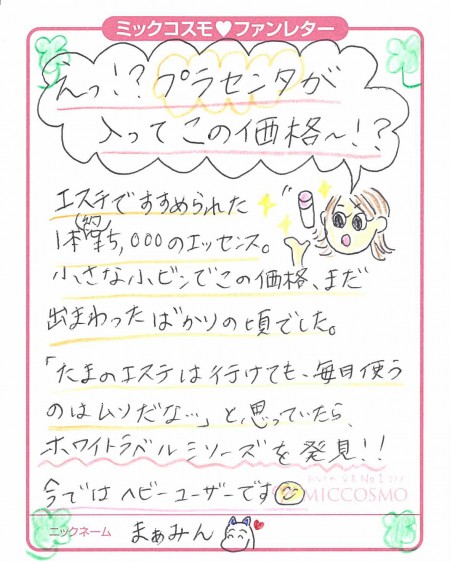 ミックコスモ♥ファンレター
えっ!?プラセンタが
入ってこの価格〜!?
エステですすめられた
(約)
1本 ,000のエッセンス。
小さな小ビンでこの価格、まだ
出まわったばかりの頃でした。
「たまのエステは行けても、毎日使う
のはムリだな…」と思っていたら、
ホワイトラベルシリーズを発見!!
今ではヘビーユーザーです
MICCOSMO
ニックネーム まぁみん